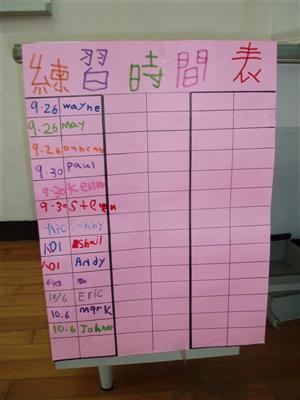 練習時間表
9.26 wayne
9.26 may
9.26 Duncan
9.30 Paul
9.30
9.30 Steven
Sunny
1.01 shall
1.01 Andy
10/6 Eric
10.6 mark
10.6